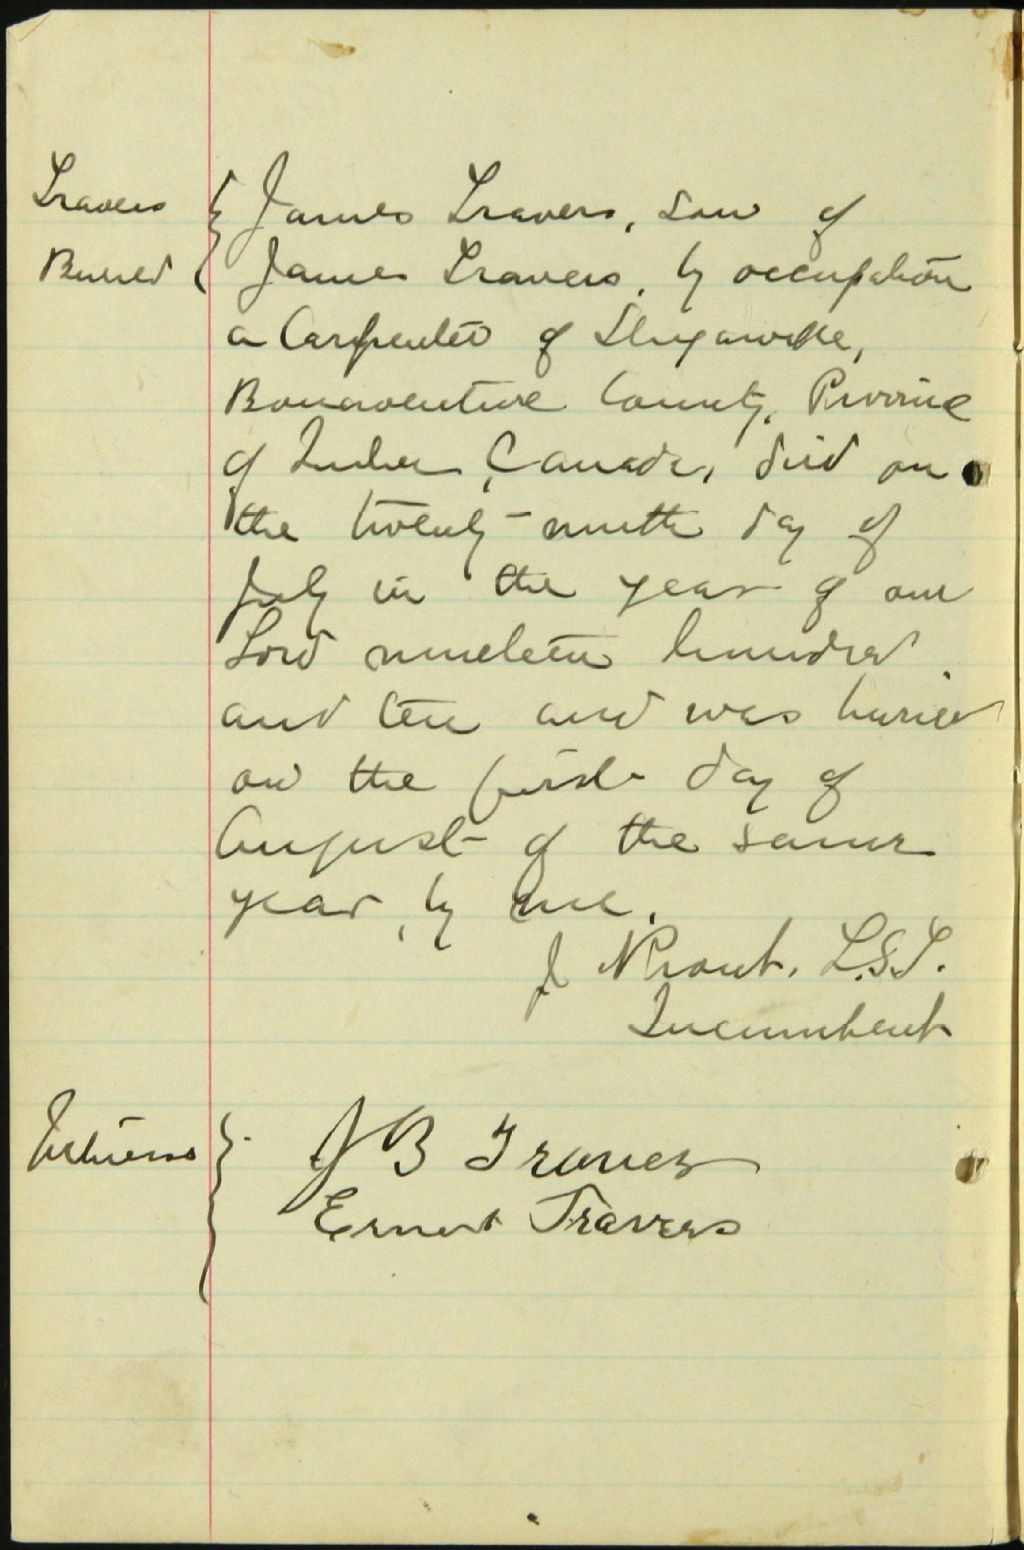 Travers
Buried
James Travers, son of
James Travers, by occupation
a Carpenter of Shigawake,
Bonaventure County, Province
of Quebec, Canada, died on
the twenty-ninth day of
July in the year of our
Lord nineteen hundred
and ten and was buried
on the first day of
August of the same
year, by me.
J N Prout, L.S.T.
Incumbent
Witness
J B Travers
Ernest Travers